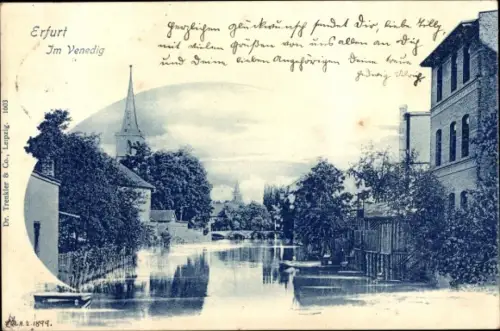 Erfurt
Im Venedig
Herzlichen Glückwunsch sendet Dir, liebe Tilly
mit vielen Grüßen von uns allen an Dich
und deine lieben Angehörigen Deine
Hedwig
Dr. Trenkler & Co., Leipzig. 1603
2. 1899.